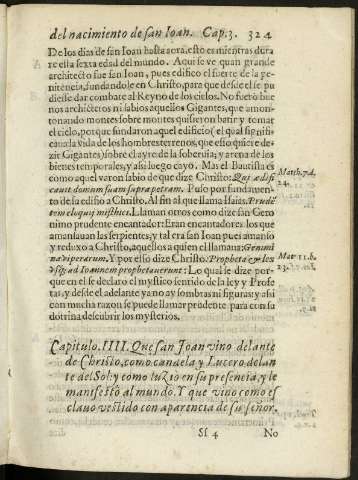 del nacimiento de san Ioan. Cap. 3. 324
De los dias de san Ioan hasta aora, esto es mientras dura
re esta sexta edad del mundo. Aqui se ve quan grande
architecto fue san Ioan, pues edifico el fuerte de la pe
nitencia, fundandole en Christo, para que desde el se pu
diesse dar combate al Reyno de los cielos. No fuerō bue
nos architectos ni sabios aquellos Gigantes, que amon
tonando montes sobre montes quisieron batir y tomar
el cielo, porque fundaron aquel edificio (el qual signifi
caua la vida de los hombres terrenos, que esso quiere de-
zir Gigantes) sobre el ayre de la soberuia, y arena de los
bienes temporales, y assi luego cayò. Mas el Bautista es
como aquel varon sabio de que dize Christo: Qui ædifi
cauit domum suam supra petram. Puso por fundamen-
to de su edifio a Christo. Al fin al que llama Isaias. Prudē
tem eloquij mistici. Llaman otros como dize san Gero
nimo prudente encantador: Eran encantadores los que
amansauan las serpientes, y tal era san Ioan pues amanso
y reduxo a Christo, aquellos a quien el llamaua: Genimi
na viperarum. Y por esso dize Christo. Prophetæ & lex
vsque ad Ioannem prophetauerunt: Lo qual se dize por-
que en el se declaro el mystico sentido de la ley y Profe
tas, y desde el adelante ya no ay sombras ni figuras y assi
con mucha razon se puede llamar prudente para con su
dotrina descubrir los mysterios.
Math. 7. d.
24.
Mat. 11. b.
13.
Capitulo. IIII. Que san Ioan vino delante
de Christo, como candela y Luzero delan
te del Sol: y como luzio en su presencia, y le
manifesto al mundo. Y que vino como es
clauo vestido con aparencia de su señor.
Sf 4 No